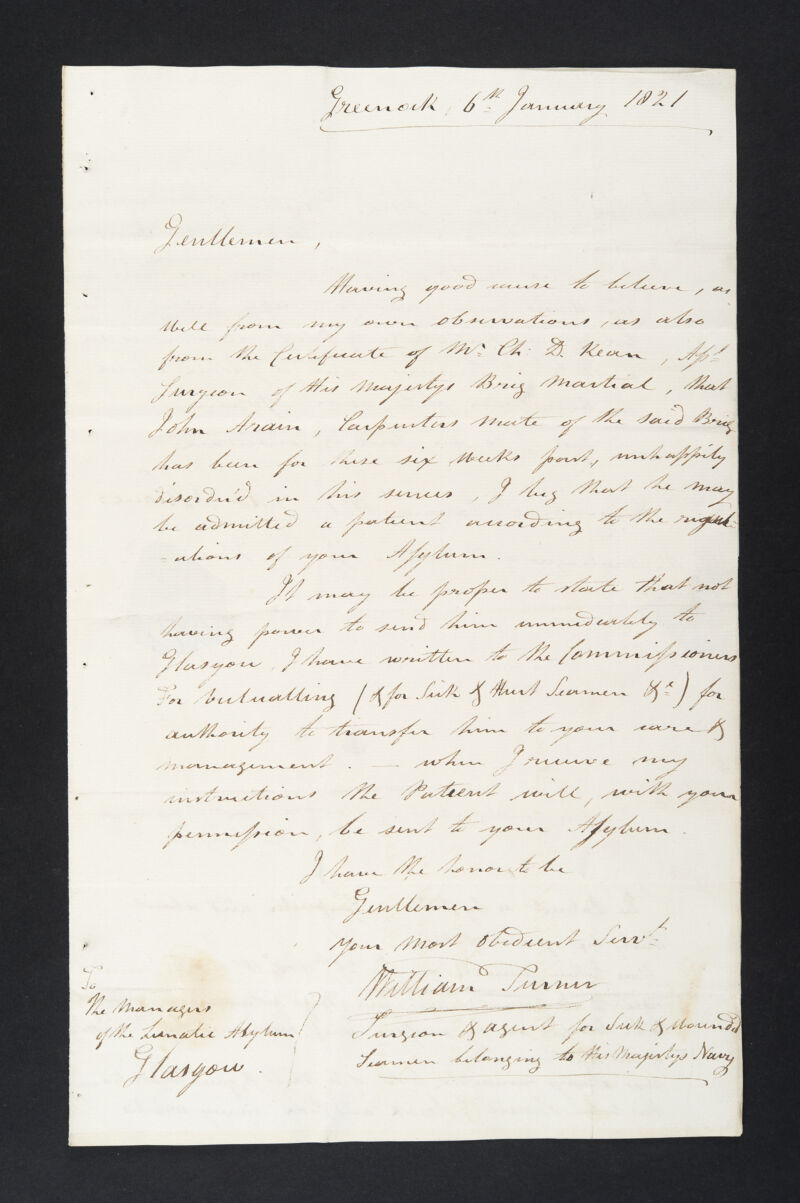 Greenock, 6th January 1821
Gentlemen,
Having good cause to believe, as
well from my own observations, as also
from the Certificate of Mr. Ch: D. Kean, Asst
Surgeon of His Majestys Brig Martial, that
John Arain, Carpenters mate of the said Brig
has been for these six weeks past, unhappily
disorder'd in his senses, I beg that he may
be admitted a patient according to the regul-
-ations of your Asylum.
It may be proper to state that not
having power to send him immediately to
Glasgow, I have written to the Commissioners
For Victualling (& for Sick & Hurt Seamen &c) for
authority to transfer him to your care &
management. — when I receive my
instructions the Patient will, with your
permission, be sent to your Asylum.
I have the honor to be
Gentlemen
Your Most Obedient Servt
William Turner
Surgeon & agent for Sick & Wounded
Seamen belonging to His Majestys Navy
To
the Managers
of the Lunatic Asylum
Glasgow.